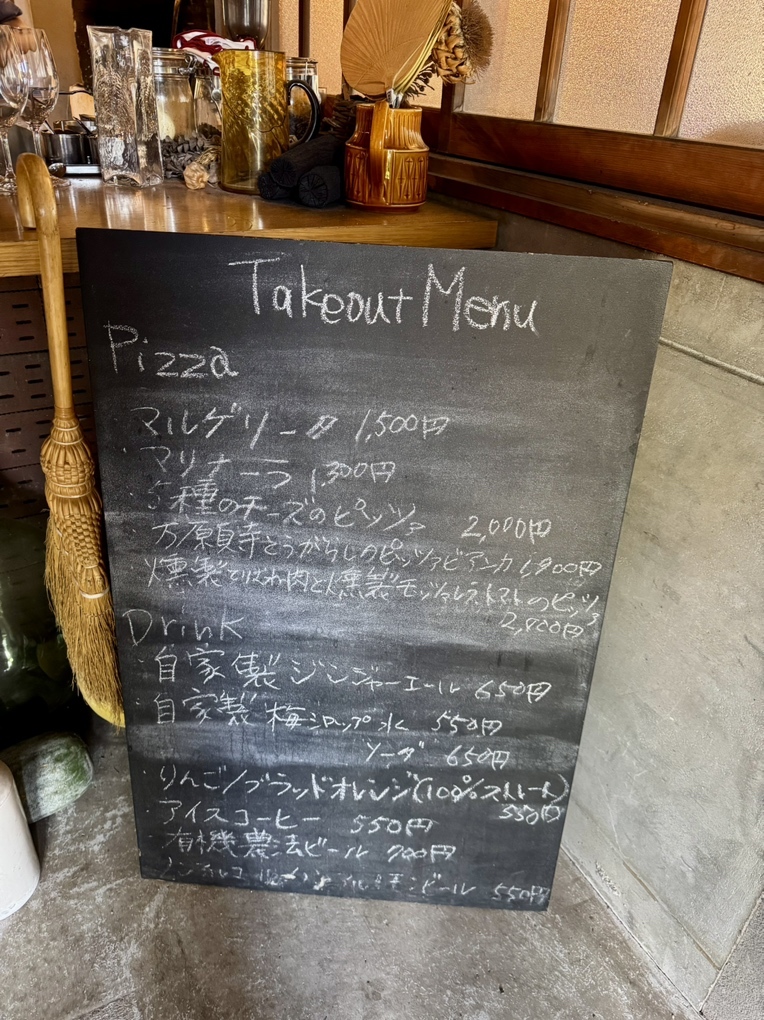 Takeout Menu
Pizza
マルゲリータ 1,500円
・マリナーラ 1,300円
・5種のチーズのピッツァ 2,000円
万願寺とうがらしのピッツァビアンカ 1,900円
燻製てばわ肉と燻製モッツァレラ、トマトのピッツァ
2,000円
Drink
・自家製ジンジャーエール 650円
・自家製梅シロップ 水 550円
ソーダ 650円
・りんご/ブラッドオレンジ(100%ストレート)
550円
・アイスコーヒー 550円
・有機農法ビール 700円
ノンアルコールビール ビール 550円